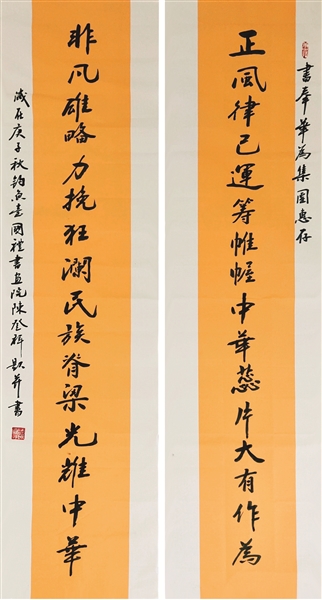 書奉華為集團惠存
正風律己運籌帷幄中華蕊片大有作為
非凡雄略力挽狂瀾民族脊梁光耀中華
歲在庚子秋釣魚臺國禮書畫院陳登科题并書